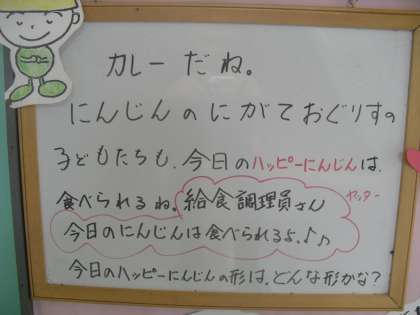 カレーだね。
にんじんのにがておぐりすの
子どもたちも、今日のハッピーにんじんは、
食べられるね。給食調理員さん
ヤッター
今日のにんじんは食べられるよ。♪♪
今日のハッピーにんじんの形は、どんな形かな?